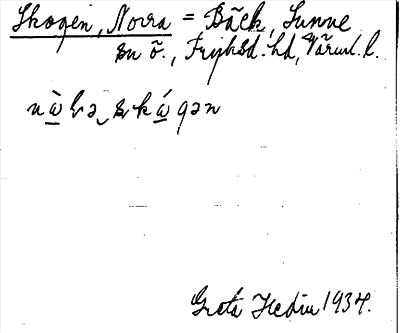 Skogen, Norra = Bäck, Sunne
sn ö., Fryksd. hd, Värml. l.
nὰ̱rə‿skά̱gən
Greta Hedin 1934.